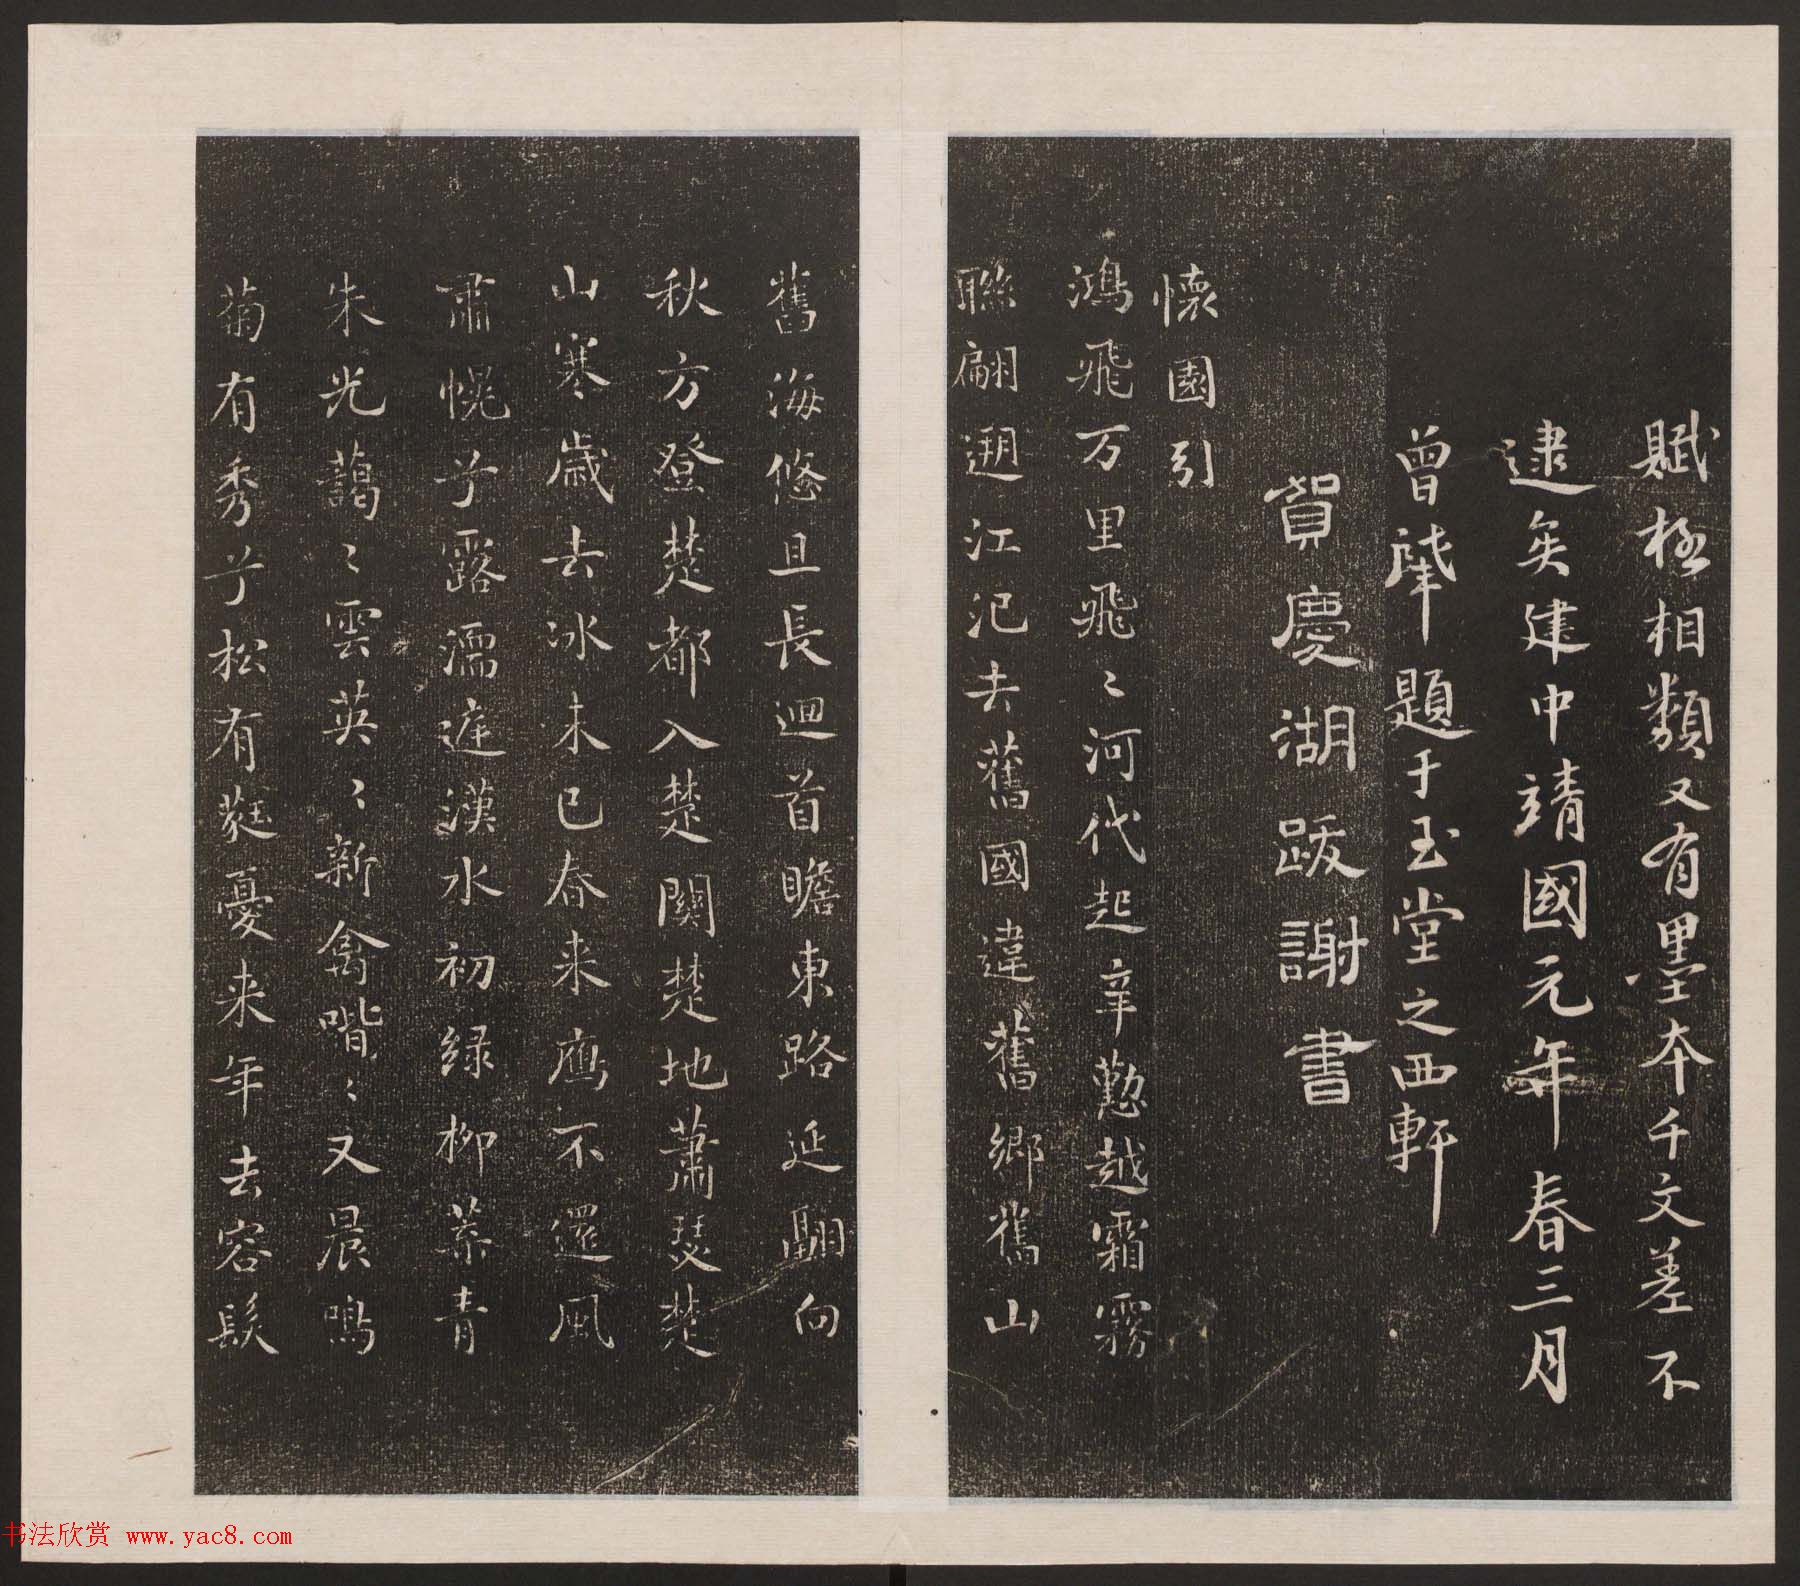 賦極相類又有墨本千文差不
逮矣建中靖國元年春三月
曾肇題于玉堂之西軒
賀慶湖跋謝書
懷園引
鴻飛万里飛〻河代起辛懃越霜霧
聯翩遡江汜去舊國違舊鄉舊山
舊海悠且長迴首瞻東路延翮向
秋方登楚都入楚關楚地蕭瑟楚
山寒歲去冰未已春来鴈不還風
肅幌兮露濡庭漢水初綠柳葉青
朱光藹〻雲英〻新禽喈〻又晨鳴
菊有秀兮松有蕤憂来年去容髮
书法欣赏 www.yac8.com